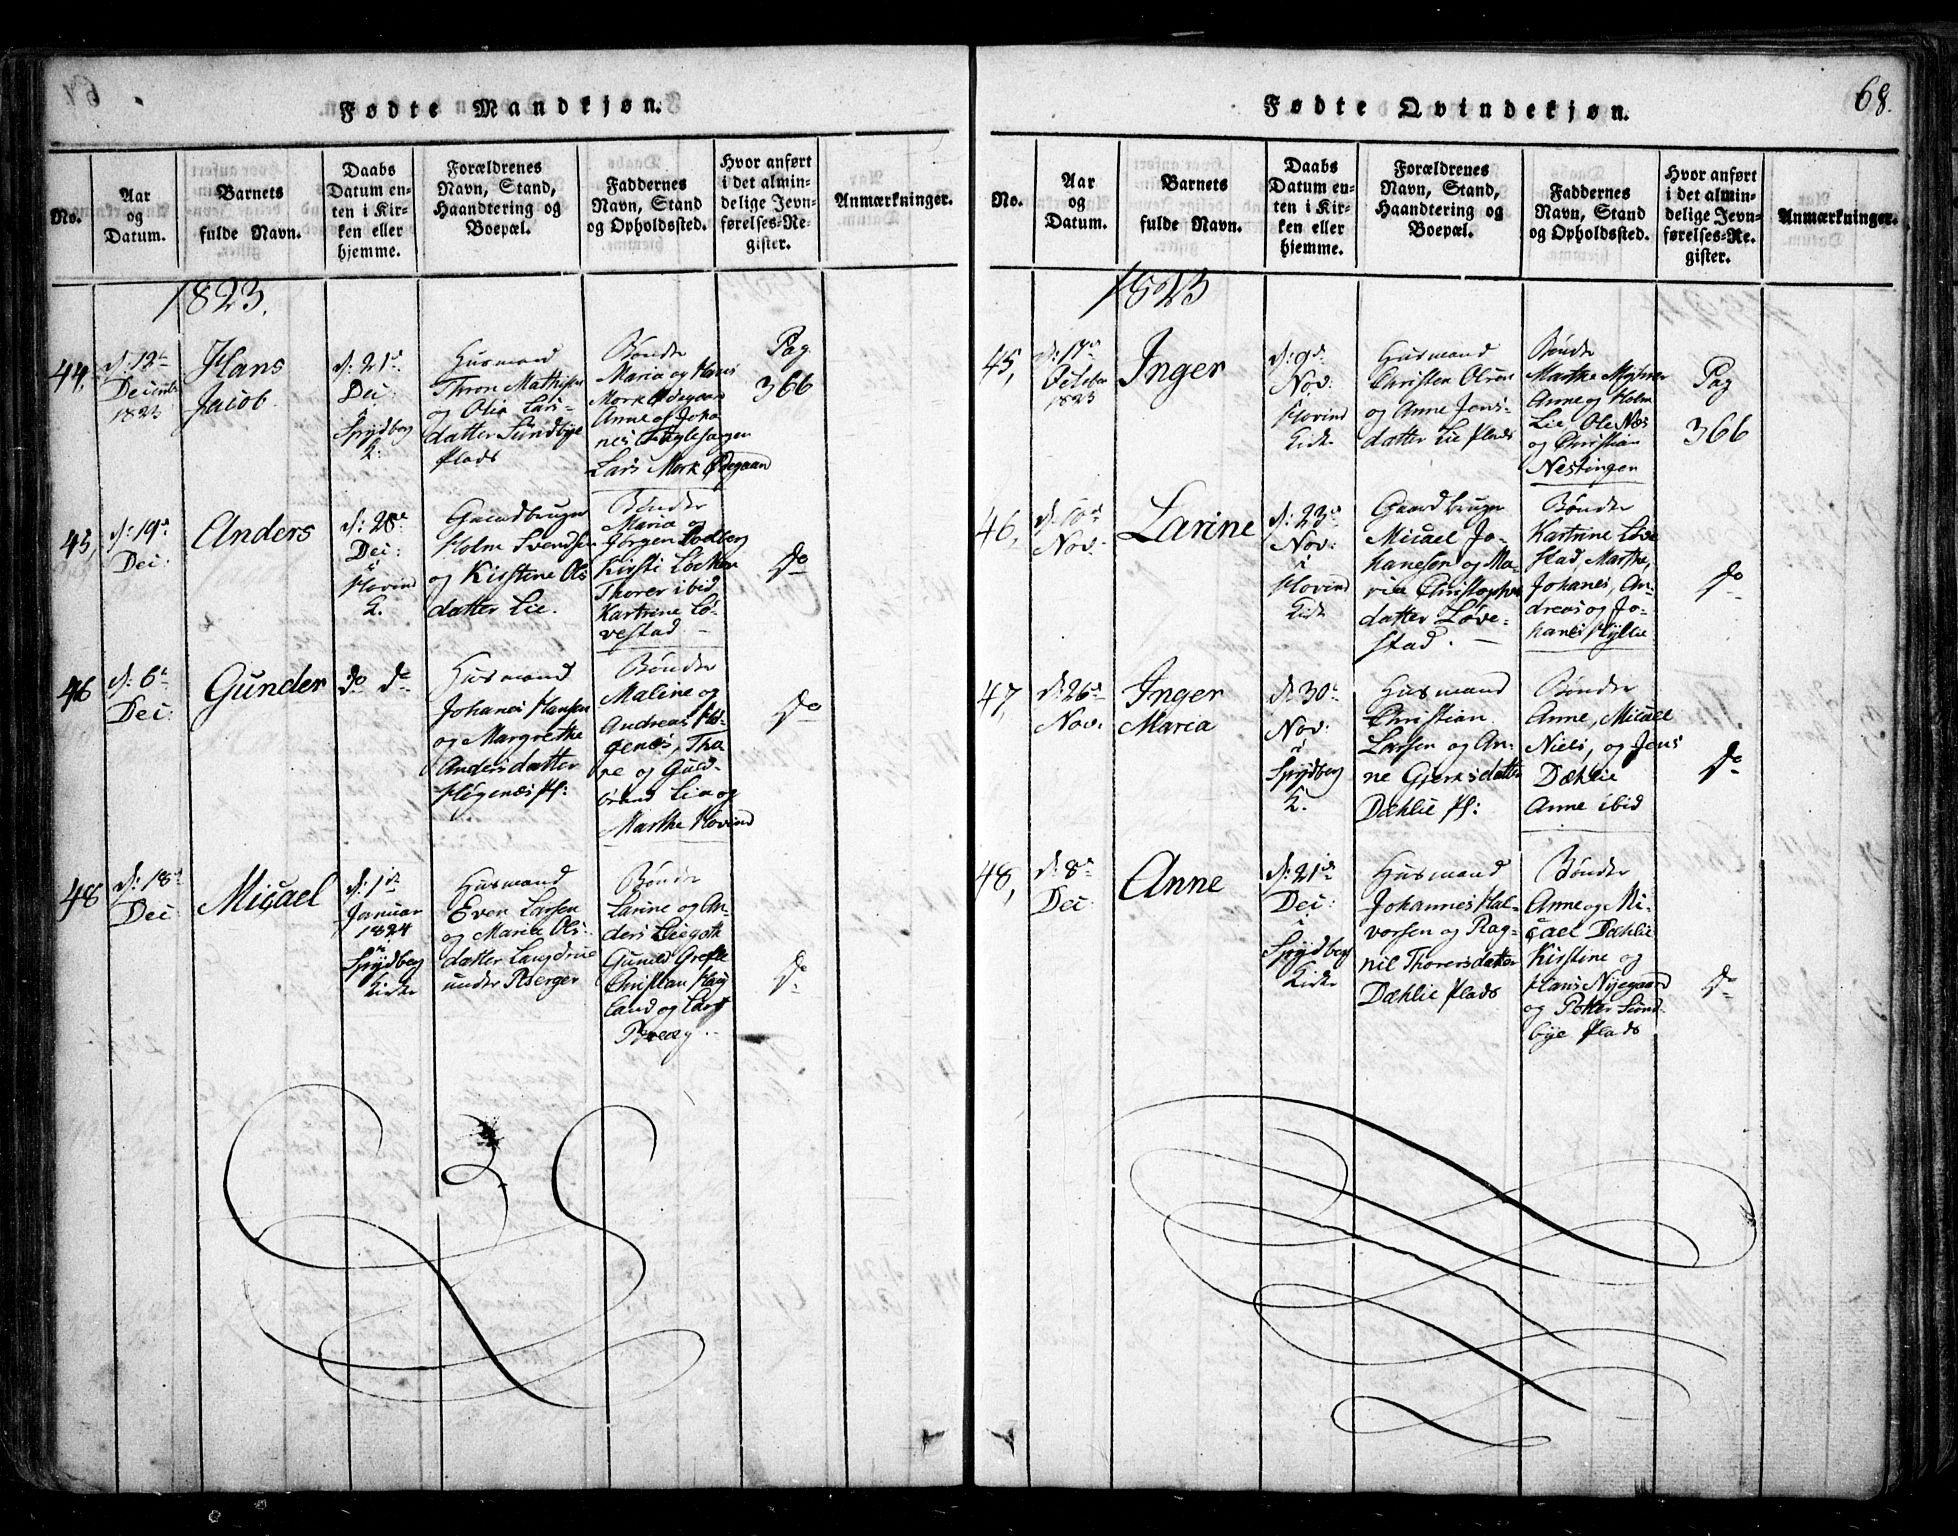 68.
Fødte Mandkjøn.
No.
Aar
og
Datum.
Barnets
fulde Navn.
Daabs
Datum en-
ten i Kir-
ken eller
hjemme.
Forældrenes
Navn, Stand,
Haandtering og
Boepæl.
Faddernes
Navn, Stand
og Opholdssted.
Hvor anført
i det almin-
delige Jevn-
førelses-Re-
gister.
Anmærkninger.
1823.
44,
d: 12te
Decemb
1823
Hans
Jacob
d: 21de
Dec:
Spydberg
K:
Husmand
Thron Mathisen
og Olia Lars-
datter Sundbye
Plads
Bønder
Maria og Hans
Mork Ødegaard
Anne og Joha
nes Fuglesangen
Lars Mork Ødegaard
Pag
366
45,
d: 19de
Dec:
Anders
d: 28de
Dec:
i
Hovind
K.
Gaardbruger
Holm Svendsen
og Kirstine Ols
datter Lie.
Bønder
Maria og
Jørgen
Kirsti Løken
Thorer ibid
Kartrine Lø-
vestad
do
46
d: 6te
Dec:
Gunder
do do
Husmand
Johanes Hansen
og Margrethe
Andersdatter
Pl:
Bønder
Maline og
Andreas
Tho
re og Guld-
brand Lie og
Marthe Hovind
do
48
d: 18de
Dec:
Micael
d: 1ste
Januar
1824
i
Spydberg
Kirke
Husmand
Even Larsen
og Maria Ols-
datter
under Berger
Bønder
Larine og An-
ders Liegoth
Gunild
Christian Haug
land og Lars
do
Fødte Qvindekjøn.
No.
Aar
og
Datum.
Barnets
fulde Navn.
Daabs
Datum en-
ten i Kir-
ken eller
hjemme.
Forældrenes
Navn, Stand,
Haandtering og
Boepæl.
Faddernes
Navn, Stand
og Opholdssted.
Hvor anført
i det almin-
delige Jevn-
førelses-Re-
gister.
Anmærkninger.
1823
45,
d: 17de
October
1823
Inger
d: 9de
Nov:
i
Hovind
Kirke
Husmand
Christen Olsen
og Anne Jens-
datter Lie Plads
Bønder
Marthe
Anne og Holm
Lie, Ole Næs
og Christian
Nestingen
Pag
366
46,
Nov:
Larine
d: 23de
Nov:
i
Hovind
Kirke
Gaardbruger
Micael Jo-
hanesen og Ma-
ria Christophers
datter Løve-
stad.
Bønder
Kartrine Løve
stad, Marthe,
Johanes, An-
dreas og Jo-
hanes Hyllie
do
47,
d: 26de
Nov:
Inger
Maria
d: 30te
Nov:
i
Spydberg
K.
Husmand
Christian
Larsen og An-
ne Gjertsdatter
Dæhlie Pl:
Bønder
Anne, Micael
Niels, og Jens
Dæhlie
Anne ibid
do
48,
d: 8de
Dec:
Anne
d: 21de
Dec:
i
Spydberg
Kirke
Husmand
Johannes Hal-
vorsen og Rag-
nil Thorersdatter
Dæhlie Plads
Bønder
Anne og Mi-
cael Dæhlie
Kirstine og
Hans Nyegaard
og Petter Sund-
bye Plads
do